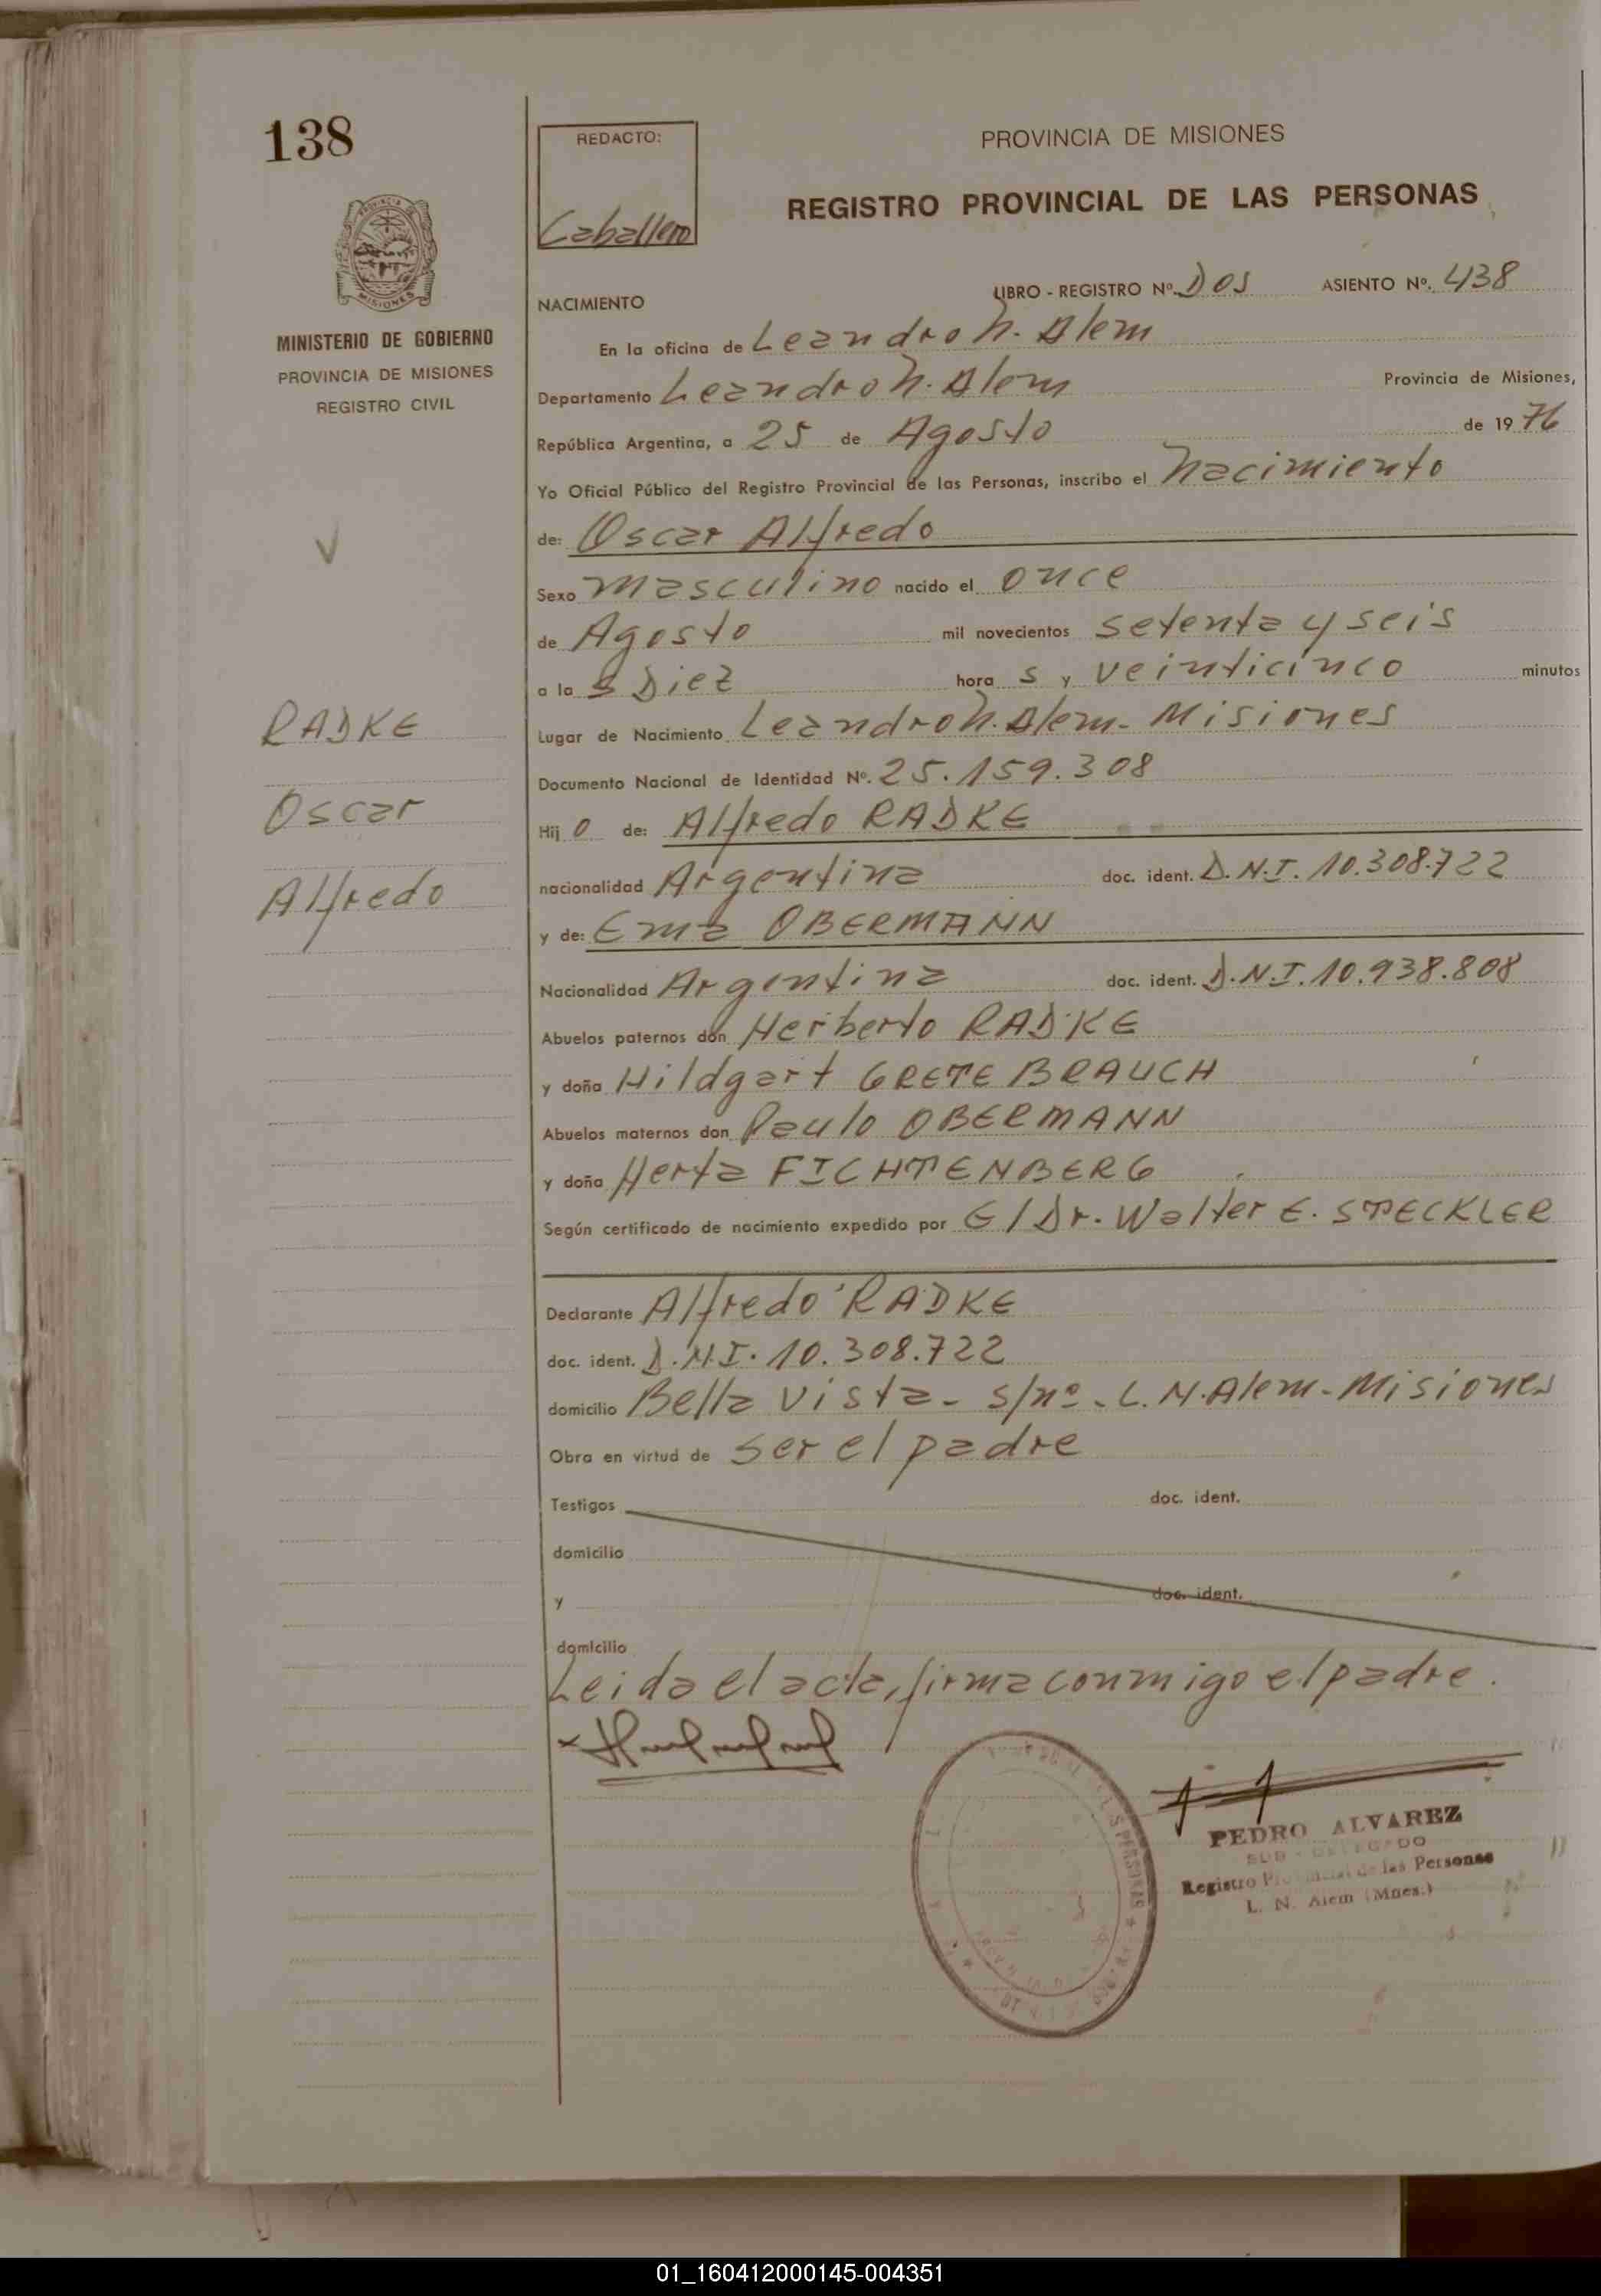 138
REDACTO:
Caballero
PROVINCIA DE MISIONES
REGISTRO PROVINCIAL DE LAS PERSONAS
MISIONES
MINISTERIO DE GOBIERNO
PROVINCIA DE MISIONES
REGISTRO CIVIL
NACIMIENTO
LIBRO - REGISTRO Nº. DOS ASIENTO Nº. 438
En la oficina de Leandro N. Alem
Departamento Leandro N. Alem Provincia de Misiones,
República Argentina, a 25 de Agosto de 1976
Yo Oficial Público del Registro Provincial de las Personas, inscribo el Nacimiento
de: Oscar Alfredo
Sexo Masculino nacido el once
de Agosto mil novecientos setenta y seis
a la s Diez hora s y veinticinco minutos
Lugar de Nacimiento Leandro N. Alem - Misiones
Documento Nacional de Identidad Nº. 25.159.308
Hij o de: Alfredo RADKE
nacionalidad Argentina doc. ident. D.N.I. 10.308.722
y de: Ema OBERMANN
Nacionalidad Argentina doc. ident. D.N.I. 10.938.808
Abuelos paternos don Heriberto RADKE
y doña Hildgart GRETE BRAUCH
Abuelos maternos don Paulo OBERMANN
y doña Herta FICHTENBERG
Según certificado de nacimiento expedido por El Dr. Walter E. STECKLER
RADKE
Oscar
Alfredo
Declarante Alfredo RADKE
doc. ident. D.N.I. 10.308.722
domicilio Bella Vista - s/nº - L.N. Alem - Misiones
Obra en virtud de ser el padre
Testigos doc. ident.
domicilio
y doc. ident.
domicilio
Leida el acta, firma conmigo el padre.
PEDRO ALVAREZ
SUB - DELEGADO
Registro Provincial de las Personas
L. N. Alem (Mnes.)
01_160412000145-004351